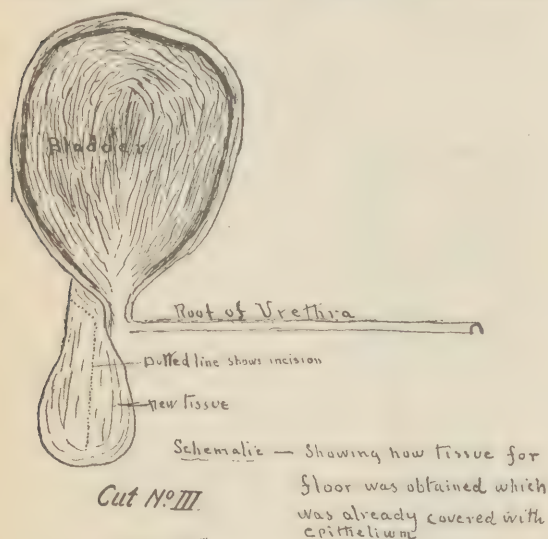 Bladder
Root of Urethra
Dotted line shows incision
new tissue
Schematic — Showing how tissue for
floor was obtained which
was already covered with
epithelium
Cut Nº III.